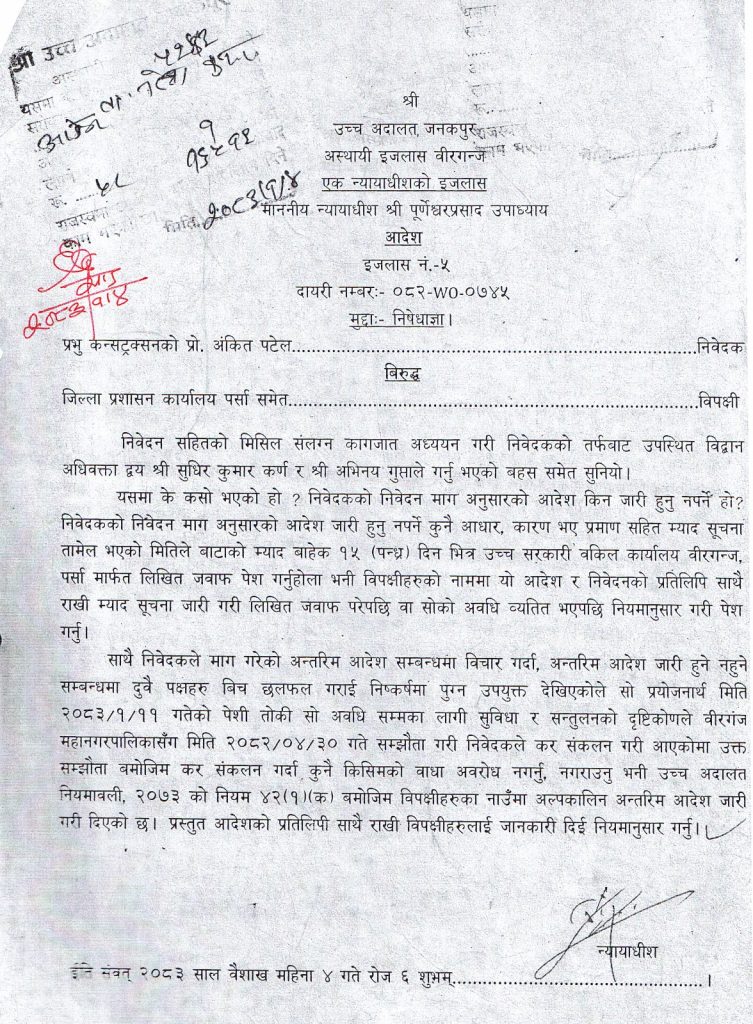 श्री उच्च अदालत
५२४२
यसमा
१
१६५१६
रु. ५८
राजस्वमा
मिति २०८३/१/४
२०८३/१/४
श्री
उच्च अदालत, जनकपुर
अस्थायी इजलास वीरगन्ज
एक न्यायाधीशको इजलास
माननीय न्यायाधीश श्री पूर्णेश्वरप्रसाद उपाध्याय
आदेश
इजलास नं.-५
दायरी नम्बरः- ०८२-WO-०७४५
मुद्दाः- निषेधाज्ञा।
प्रभु कन्सट्रक्सनको प्रो. अंकित पटेल......................................................................................निवेदक
बिरुद्ध
जिल्ला प्रशासन कार्यालय पर्सा समेत......................................................................................विपक्षी
निवेदन सहितको मिसिल संलग्न कागजात अध्ययन गरी निवेदकको तर्फबाट उपस्थित विद्वान
अधिवक्ता द्वय श्री सुधिर कुमार कर्ण र श्री अभिनय गुप्ताले गर्नु भएको बहस समेत सुनियो।
यसमा के कसो भएको हो ? निवेदकको निवेदन माग अनुसारको आदेश किन जारी हुनु नपर्ने हो?
निवेदकको निवेदन माग अनुसारको आदेश जारी हुनु नपर्ने कुनै आधार, कारण भए प्रमाण सहित म्याद सूचना
तामेल भएको मितिले बाटाको म्याद बाहेक १५ (पन्ध्र) दिन भित्र उच्च सरकारी वकिल कार्यालय वीरगन्ज,
पर्सा मार्फत लिखित जवाफ पेश गर्नुहोला भनी विपक्षीहरुको नाममा यो आदेश र निवेदनको प्रतिलिपि साथै
राखी म्याद सूचना जारी गरी लिखित जवाफ परेपछि वा सोको अवधि व्यतित भएपछि नियमानुसार गरी पेश
गर्नु।
साथै निवेदकले माग गरेको अन्तरिम आदेश सम्बन्धमा विचार गर्दा, अन्तरिम आदेश जारी हुने नहुने
सम्बन्धमा दुवै पक्षहरु बिच छलफल गराई निष्कर्षमा पुग्न उपयुक्त देखिएकोले सो प्रयोजनार्थ मिति
२०८३/१/११ गतेको पेशी तोकी सो अवधि सम्मका लागी सुविधा र सन्तुलनको दृष्टिकोणले वीरगंज
महानगरपालिकासँग मिति २०८२/०४/३० गते सम्झौता गरी निवेदकले कर संकलन गरी आएकोमा उक्त
सम्झौता बमोजिम कर संकलन गर्दा कुनै किसिमको वाधा अवरोध नगर्नु, नगराउनु भनी उच्च अदालत
नियमावली, २०७३ को नियम ४२(१)(क) बमोजिम विपक्षीहरुका नाउँमा अल्पकालिन अन्तरिम आदेश जारी
गरी दिएको छ। प्रस्तुत आदेशको प्रतिलिपी साथै राखी विपक्षीहरुलाई जानकारी दिई नियमानुसार गर्नु।
न्यायाधीश
इति संवत् २०८३ साल वैशाख महिना ४ गते रोज ६ शुभम्......................................................।